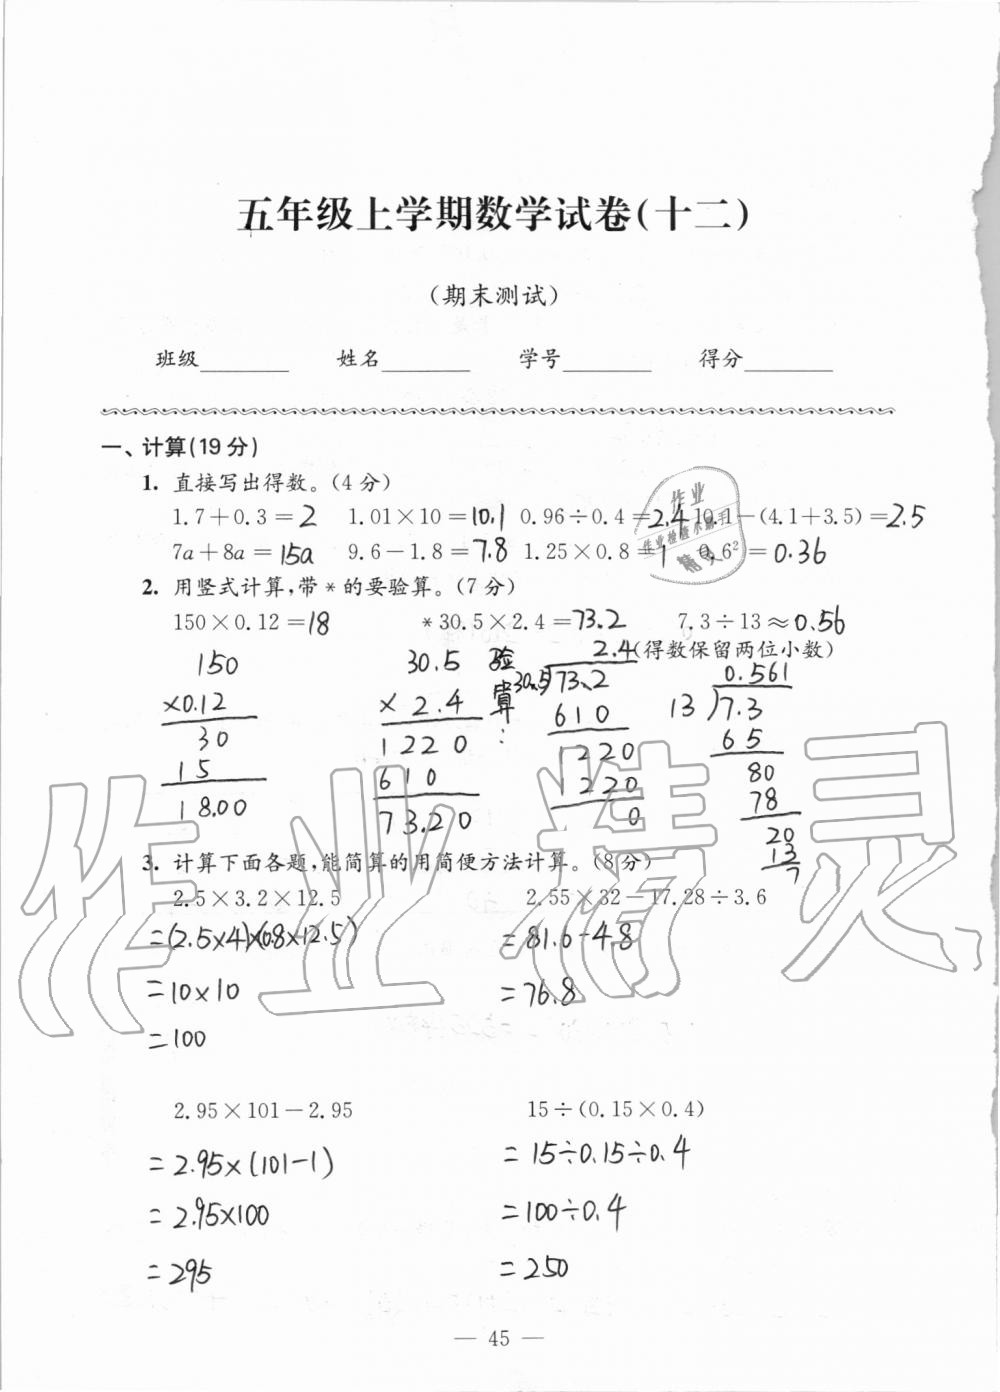 五年级上学期数学试卷(十二)
(期末测试)
班级 姓名 学号 得分
一、计算(19分)
1. 直接写出得数。(4分)
1.7+0.3=2 1.01×10=10.1 0.96÷0.4=2.4 10.1-(4.1+3.5)=2.5
7a+8a=15a 9.6-1.8=7.8 1.25×0.8=1 0.6²=0.36
2. 用竖式计算,带*的要验算。(7分)
150×0.12=18 *30.5×2.4=73.2 7.3÷13≈0.56
(得数保留两位小数)
150
×0.12
30
15
18.00
30.5
× 2.4
1220
610
73.20
验算:
2.4
30.5)73.2
610
1220
1220
0
0.561
13)7.3
65
80
78
20
13
7
3. 计算下面各题,能简算的用简便方法计算。(8分)
2.5×3.2×12.5 2.55×32-17.28÷3.6
=(2.5×4)×(0.8×12.5) =81.6-4.8
=10×10 =76.8
=100
2.95×101-2.95 15÷(0.15×0.4)
=2.95×(101-1) =15÷0.15÷0.4
=2.95×100 =100÷0.4
=295 =250
— 45 —
作业精灵
作业
作业检查小帮手
精灵